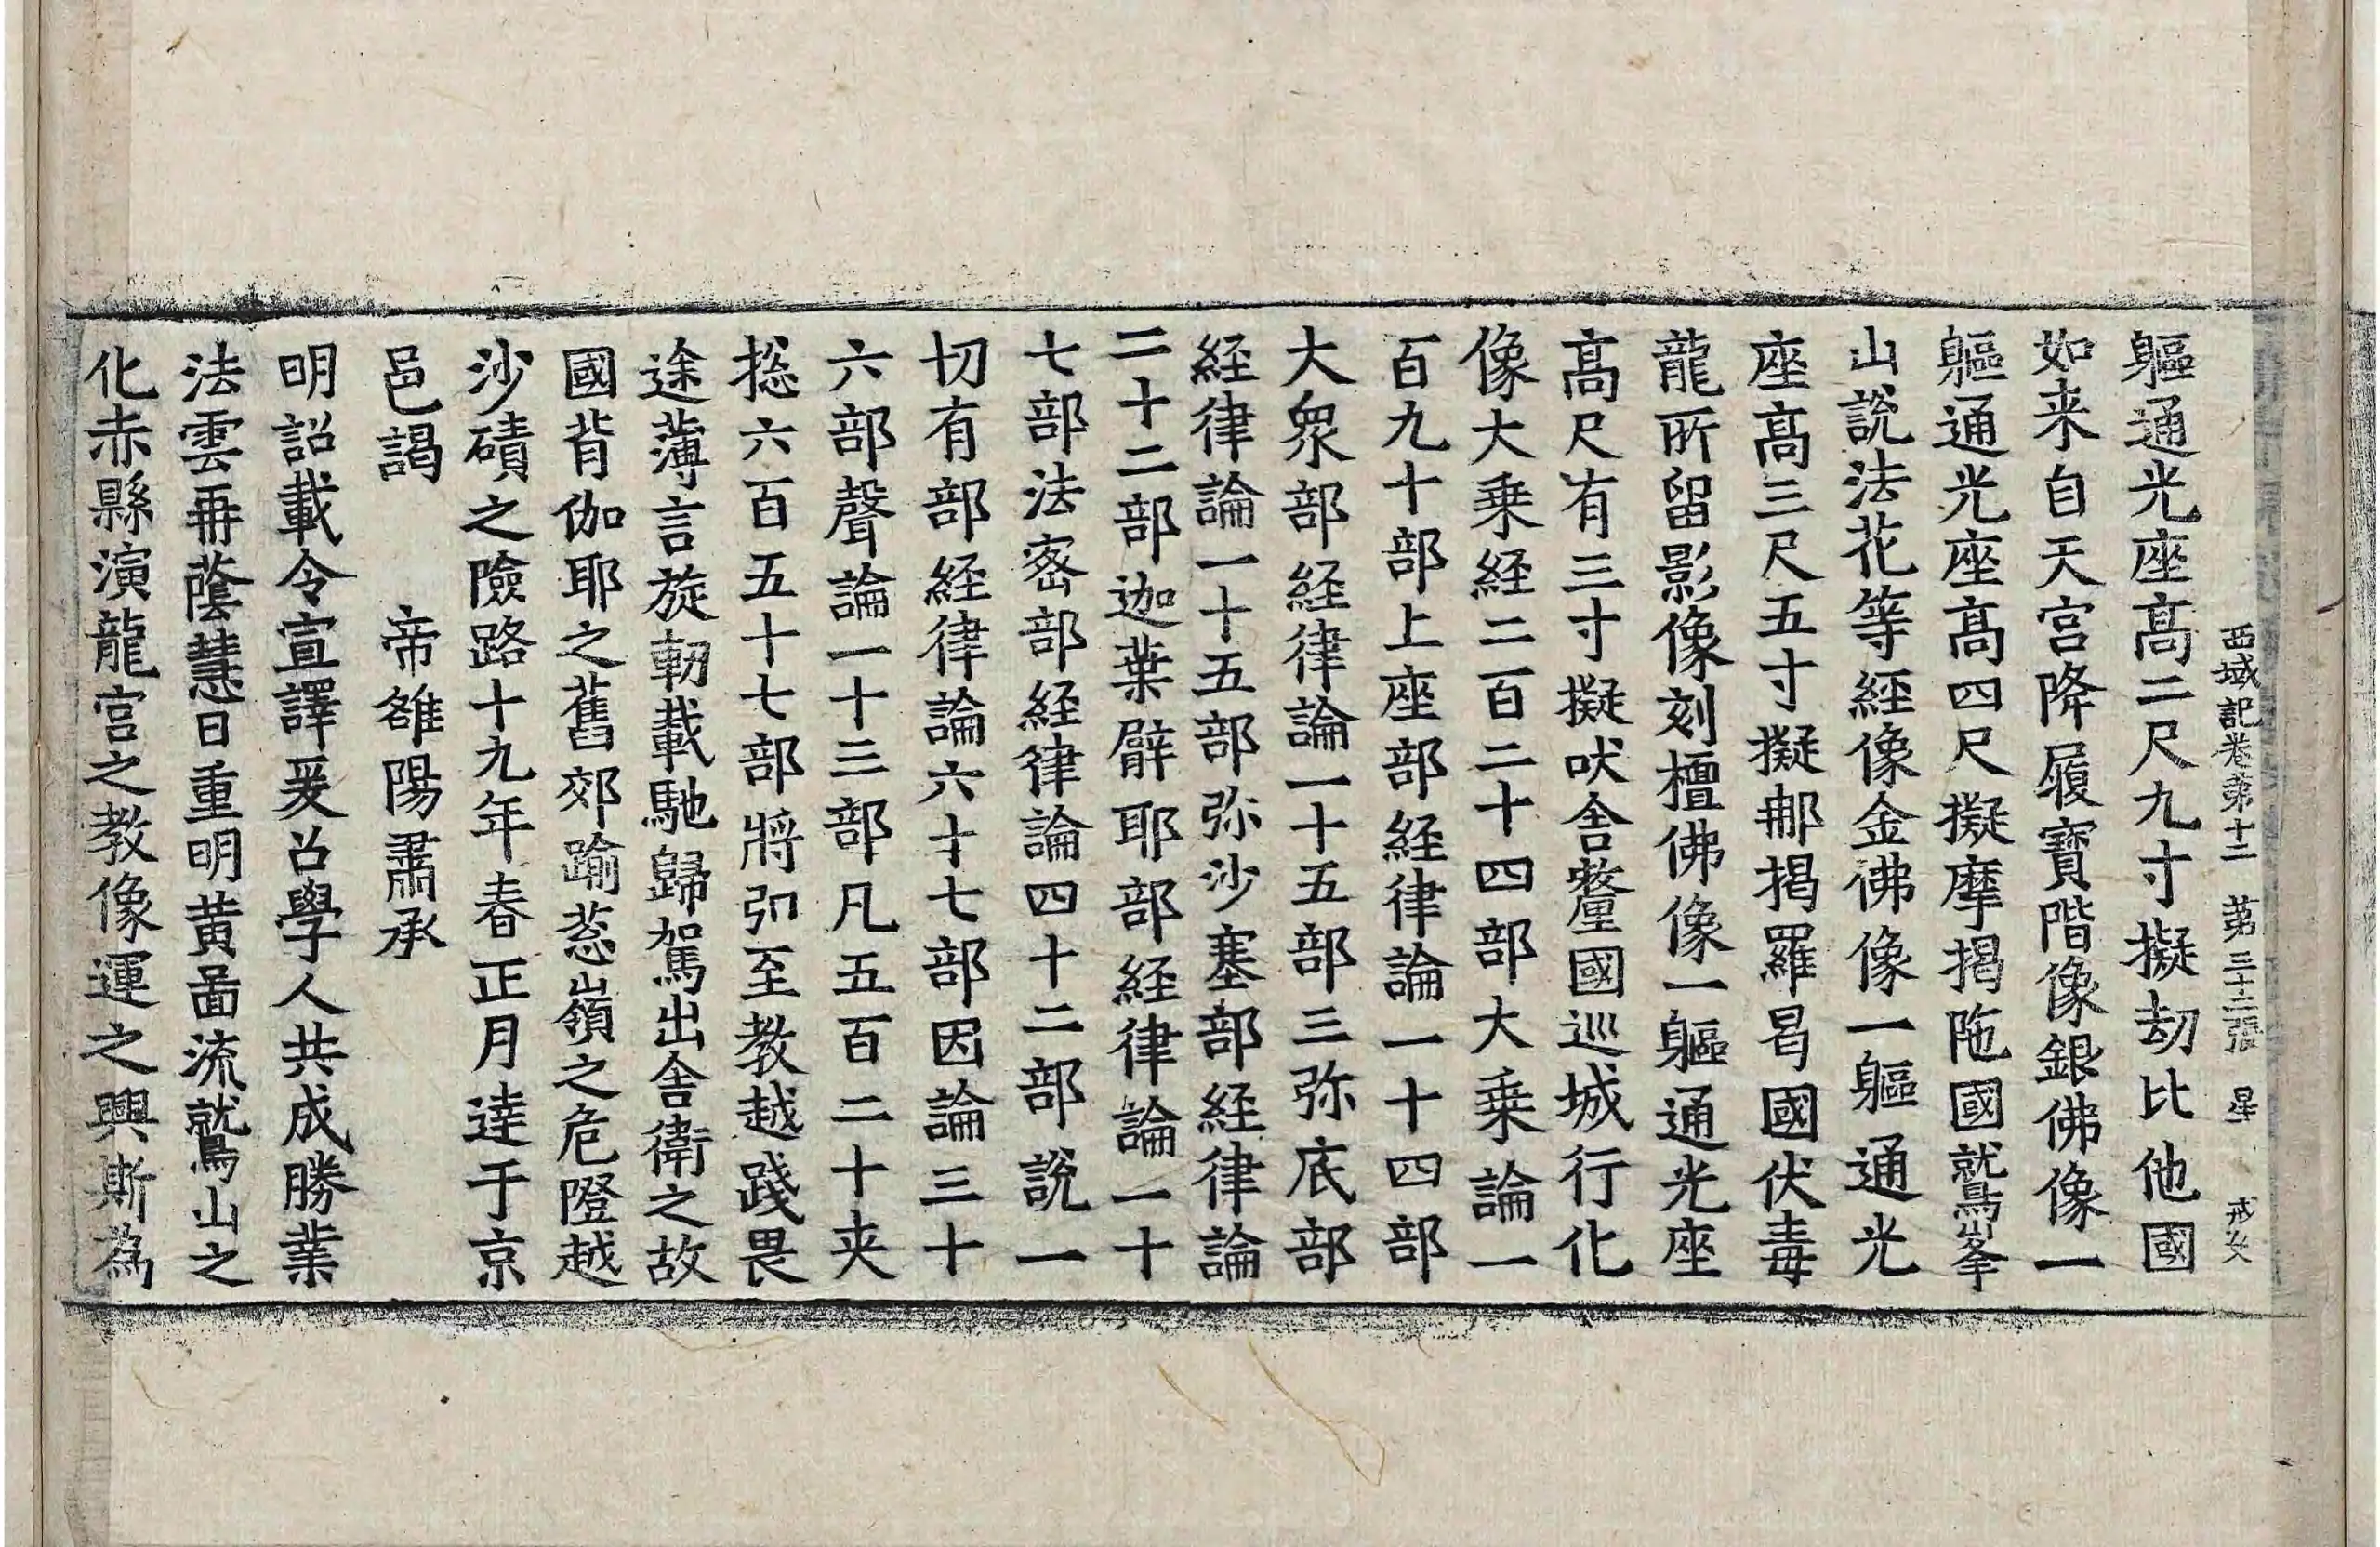 西域記卷第十二 第三十二張 星 戒文
軀通光座髙二尺九寸擬劫比他國
如来自天宮降履寶階像銀佛像一
軀通光座髙四尺擬摩揭陁國鷲峯
山說法花等經像金佛像一軀通光
座髙三尺五寸擬那揭羅曷國伏毒
龍所留影像刻檀佛像一軀通光座
髙尺有三寸擬吠舍釐國巡城行化
像大乗経二百二十四部大乗論一
百九十部上座部経律論一十四部
大衆部経律論一十五部三弥底部
経律論一十五部弥沙塞部経律論
二十二部迦葉臂耶部経律論一十
七部法密部経律論四十二部說一
切有部経律論六十七部因論三十
六部聲論一十三部凡五百二十夾
捴六百五十七部將弘至教越踐畏
途薄言旋軔載馳歸駕出舍衛之故
國背伽耶之舊郊踰葱嶺之危隥越
沙磧之險路十九年春正月達于京
邑謁 帝雒陽肅承
明詔載令宣譯爰召學人共成勝業
法雲再蔭慧日重明黄啚流鷲山之
化赤縣演龍宮之教像運之興斯為